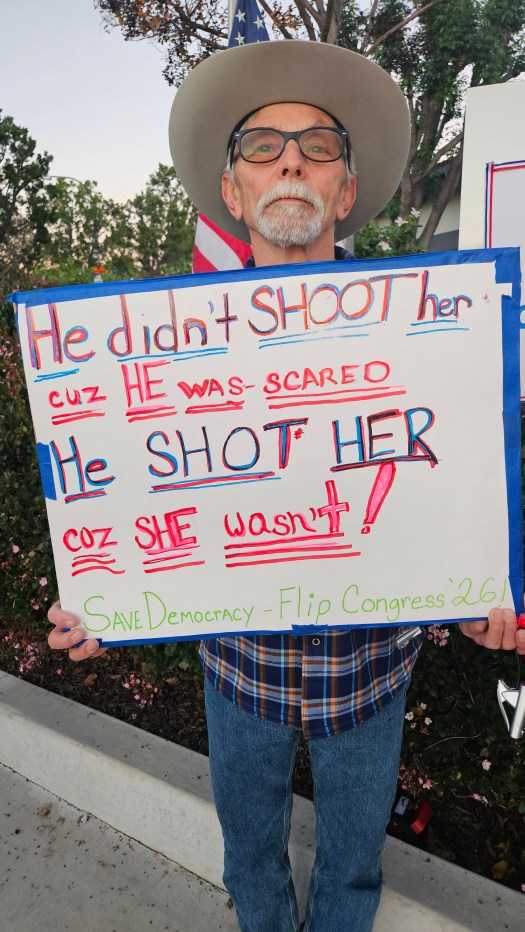 He didn't SHOOT her
cuz HE WAS-SCARED
He SHOT HER
coz SHE wasn't!
SAVE DEMOCRACY - Flip Congress '26!